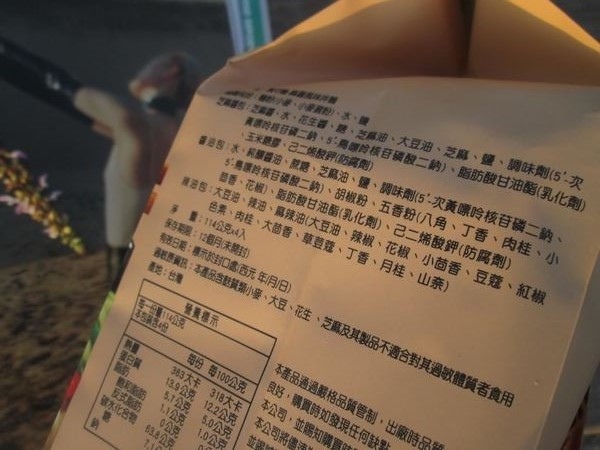 麵粉(小麥、小麥澱粉)、水、鹽
芝麻醬包：芝麻醬、水、花生醬、糖、芝麻油、大豆油、芝麻、鹽、調味劑(5'-次
黃嘌呤核苷磷二鈉、5'-鳥嘌呤核苷磷酸二鈉)、脂肪酸甘油酯(乳化劑)
、玉米糖膠、己二烯酸鉀(防腐劑)
醬油包：水、純釀醬油、蔗糖、芝麻油、鹽、調味劑(5'-次黃嘌呤核苷磷二鈉、
5'-鳥嘌呤核苷磷酸二鈉)、胡椒粉、五香粉(八角、丁香、肉桂、小
茴香、花椒)、脂肪酸甘油酯(乳化劑)、己二烯酸鉀(防腐劑)
辣油包：大豆油、辣油、麻辣油(大豆油、辣椒、花椒、小茴香、豆蔻、紅椒
色素、肉桂、大茴香、草荳蔻、丁香、月桂、山奈)
淨 量：114公克x4入
保存期限：12個月(未開封)
有效日期：標示於封口處(西元 年/月/日)
過敏原資訊：本產品含麩質類小麥、大豆、花生、芝麻及其製品不適合對其過敏體質者食用
產地：台灣
營養標示
每一份量114公克
本包裝含4份
每份 每100公克
熱量 363大卡 318大卡
蛋白質 13.9公克 12.2公克
脂肪 5.7公克 5.0公克
飽和脂肪 1.1公克 1.0公克
反式脂肪 0公克 0公克
碳水化合物 63.8公克
糖 7.1
本產品通過嚴格品質管制，出廠時品質
良好，購買時如發現任何缺點
本公司，並賜知購買時
本公司將儘速